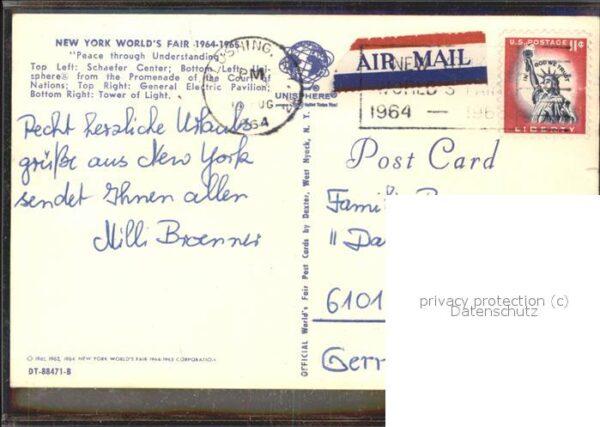 NEW YORK WORLD'S FAIR 1964-1965
"Peace through Understanding"
Top Left: Schaefer Center; Bottom Left: Uni-
sphere® from the Promenade of the Court of
Nations; Top Right: General Electric Pavilion;
Bottom Right: Tower of Light.
PM
1964
UNISPHERE
AIR MAIL
1964 —
U.S. POSTAGE 11¢
IN GOD WE TRUST
LIBERTY
Recht herzliche Urlaubs
grüße aus New York
sendet Ihnen allen
Milli
Post Card
Famili
"Da
6101
Gerr
OFFICIAL World's Fair Post Cards by Dexter, West Nyack, N. Y.
privacy protection (c)
Datenschutz
© 1961, 1962, 1964 NEW YORK WORLD'S FAIR 1964-1965 CORPORATION
DT-88471-B